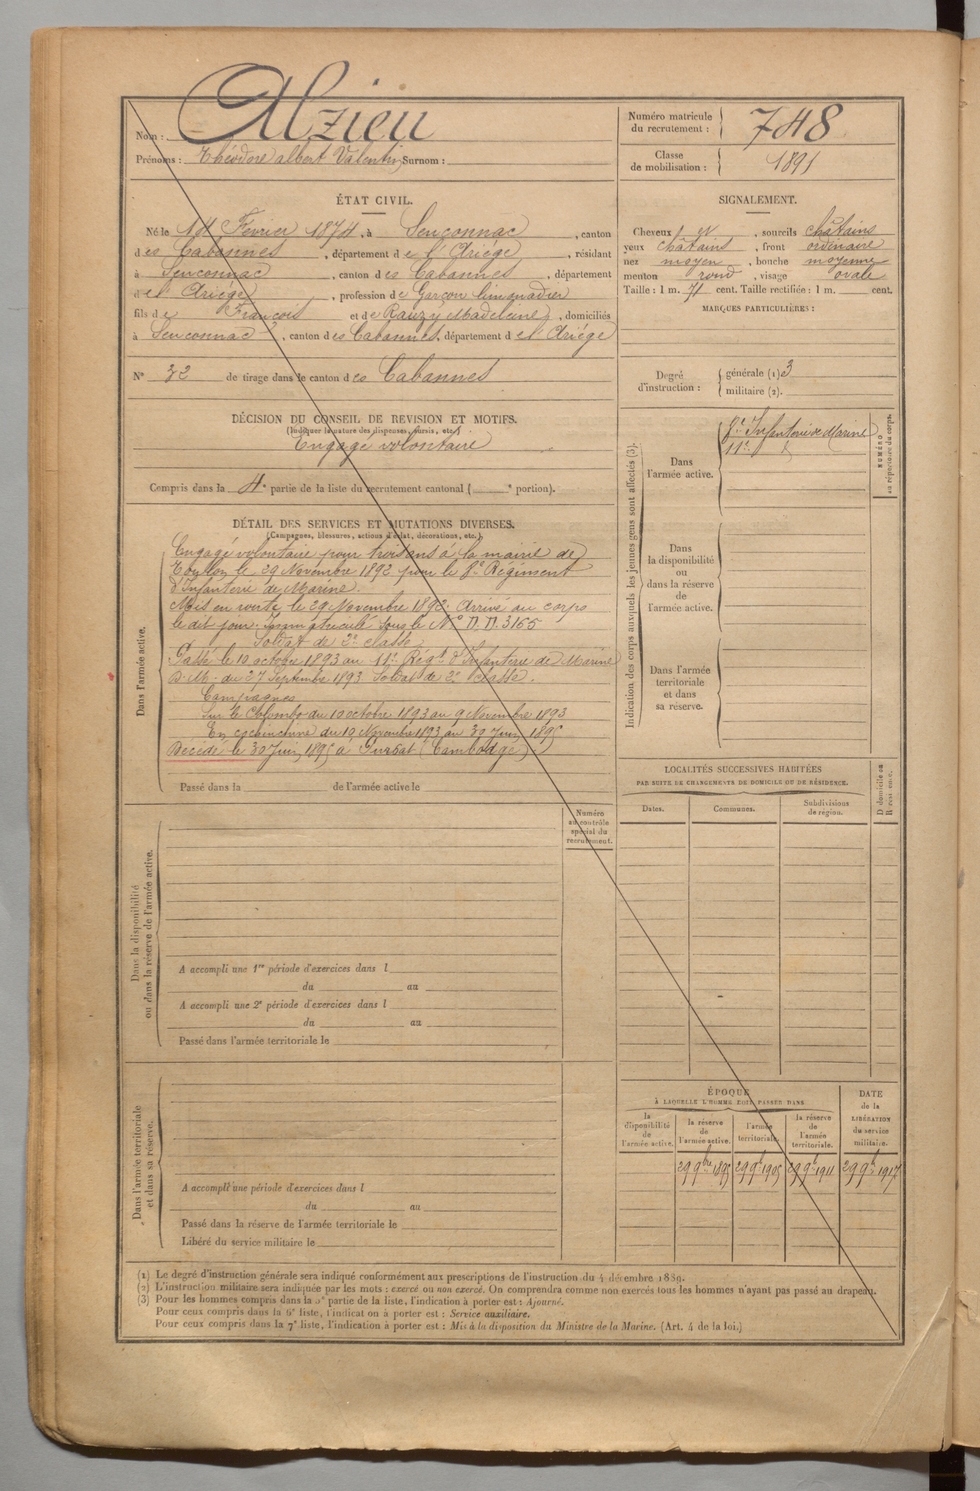 Nom : Alzieu
Prénoms : Théodore albert Valentin Surnom :
Numéro matricule du recrutement : 748
Classe de mobilisation : 1891
ÉTAT CIVIL.
Né le Février 1874, à Senconnac, canton
des Cabannes, département de l'Ariége, résidant
à Senconnac, canton des Cabannes, département
de l'Ariége, profession de Garçon limonadier
fils de François et de Rauzy Madeleine, domiciliés
à Senconnac, canton des Cabannes, département de l'Ariége
N° 32 de tirage dans le canton des Cabannes
SIGNALEMENT.
Cheveux et, sourcils châtains
yeux châtains, front ordinaire
nez moyen, bouche moyenne
menton rond, visage ovale
Taille : 1 m. 71 cent. Taille rectifiée : 1 m. cent.
MARQUES PARTICULIÈRES :
Degré d'instruction : générale (1) 3
militaire (2).
DÉCISION DU CONSEIL DE REVISION ET MOTIFS.
(Indiquer la nature des dispenses, sursis, etc.)
Engagé volontaire
Compris dans la 4e partie de la liste du recrutement cantonal ( e portion).
DÉTAIL DES SERVICES ET MUTATIONS DIVERSES.
(Campagnes, blessures, actions d'éclat, décorations, etc.)
Dans l'armée active.
Engagé volontaire pour trois ans à la mairie de
Toulon le 29 Novembre 1892 pour le 8e Régiment
d'Infanterie de Marine.
Mis en route le 29 Novembre 1892. Arrivé au corps
le dit jour. Immatriculé sous le N° 3165
Soldat de 2e classe
Passé le 10 octobre 1893 au 11e Régt d'Infanterie de Marine
D.M. du 27 Septembre 1893 Soldat de 2e classe.
Campagnes
Sur le Colombo du 10 octobre 1893 au 9 Novembre 1893
En cochinchine du 10 Novembre 1893 au 30 Juin 1895
Décédé le 30 Juin 1895 à Pursat (Cambodge)
Passé dans la de l'armée active le
Indication des corps auxquels les jeunes gens sont affectés (3).
Dans l'armée active.
8e Infanterie de Marine
11e
NUMÉRO au répertoire du corps.
Dans la disponibilité ou dans la réserve de l'armée active.
Dans l'armée territoriale et dans sa réserve.
LOCALITÉS SUCCESSIVES HABITÉES
PAR SUITE DE CHANGEMENTS DE DOMICILE OU DE RÉSIDENCE.
Dates.
Communes.
Subdivisions de région.
Numéro au contrôle spécial du recrutement.
Dans la disponibilité ou dans la réserve de l'armée active.
A accompli une 1re période d'exercices dans l
du au
A accompli une 2e période d'exercices dans l
du au
Passé dans l'armée territoriale le
Dans l'armée territoriale et dans sa réserve.
A accompli une période d'exercices dans l
du au
Passé dans la réserve de l'armée territoriale le
Libéré du service militaire le
ÉPOQUE
À LAQUELLE L'HOMME DOIT PASSER DANS
la disponibilité de l'armée active.
la réserve de l'armée active.
l'armée territoriale.
la réserve de l'armée territoriale.
DATE de la LIBÉRATION du service militaire.
29 9bre 1895
29 9e 1905
29 9e 1911
29 9e 1917
(1) Le degré d'instruction générale sera indiqué conformément aux prescriptions de l'instruction du 4 décembre 1889.
(2) L'instruction militaire sera indiquée par les mots : exercé ou non exercé. On comprendra comme non exercés tous les hommes n'ayant pas passé au drapeau.
(3) Pour les hommes compris dans la 5e partie de la liste, l'indication à porter est : Ajourné.
Pour ceux compris dans la 6e liste, l'indication à porter est : Service auxiliaire.
Pour ceux compris dans la 7e liste, l'indication à porter est : Mis à la disposition du Ministre de la Marine. (Art. 4 de la loi.)